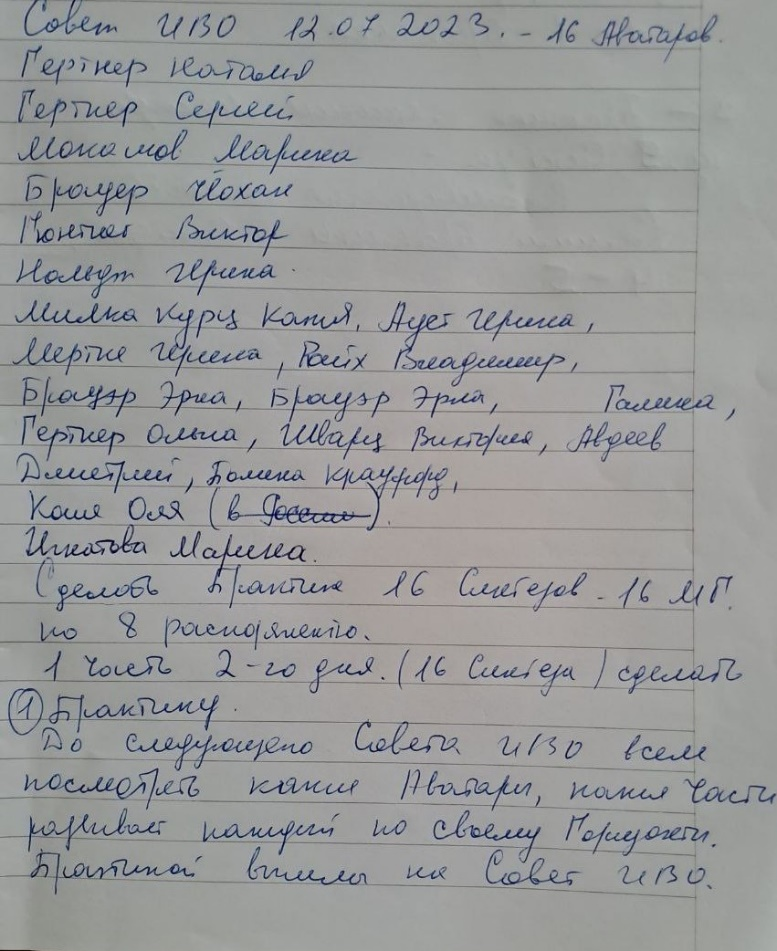 Совет ИВО 12.07.2023. - 16 Аватаров.
Гертнер Наталия
Гертнер Сергей
Марина
Брауер Йохан
Виктор
Ирина.
Милка Курц Катя, Ауст Ирина,
Мертке Ирина, Райх Владимир,
Брауэр Эрна, Брауэр Эрна, Галина,
Гертнер Ольга, Шварц Виктория, Авдеев
Дмитрий, Полина Крауфорд,
Каша Оля (в России).
Игнатова Марина.
Сделать Практики 16 Синтезов - 16 МГ.
по 8 распоряжению.
1 часть 2-го дня. (16 Синтеза) сделать
① Практику.
До следующего Совета ИВО всем
посмотреть какие Аватары, какие Части
развивает каждый по своему Горизонту.
Практикой вышли на Совет ИВО.